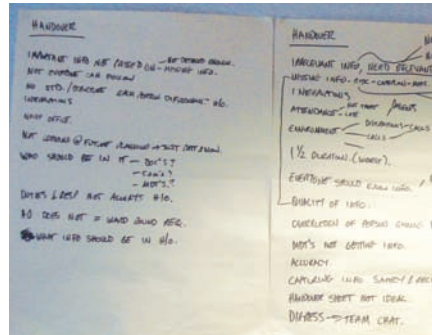 HANDOVER
IMPORTANT INFO NOT PASSED ON - NOT DETAILED ENOUGH.
- MISSING INFO.
NOT EVERYONE CAN FOLLOW
NO STD. / STRUCTURE EACH PERSON DIFFERENT H/O.
INTERRUPTIONS
NOISY OFFICE.
NOT LOOKING @ FUTURE PLANNING → JUST
WHO SHOULD BE IN IT - DOC'S?
MDT'S?
DOES NOT = WARD ROUND REQ.
WHAT INFO SHOULD BE IN H/O.
HANDOVER
IRRELEVANT INFO, NEED RELEVANT
MISSING INFO -
INTERRUPTIONS
ATTENDANCE - NOT THERE /
- LATE
ENVIRONMENT - DISTRACTIONS - CALLS
1 1/2 DURATION. (WORST).
EVERYONE SHOULD KNOW INFO.
QUALITY OF INFO.
OF PERSON GIVING
MDT'S NOT GETTING INFO.
ACCURACY.
CAPTURING INFO. SAFELY &
HANDOVER SHEET NOT IDEAL.
DIGRESS → TEAM CHAT.